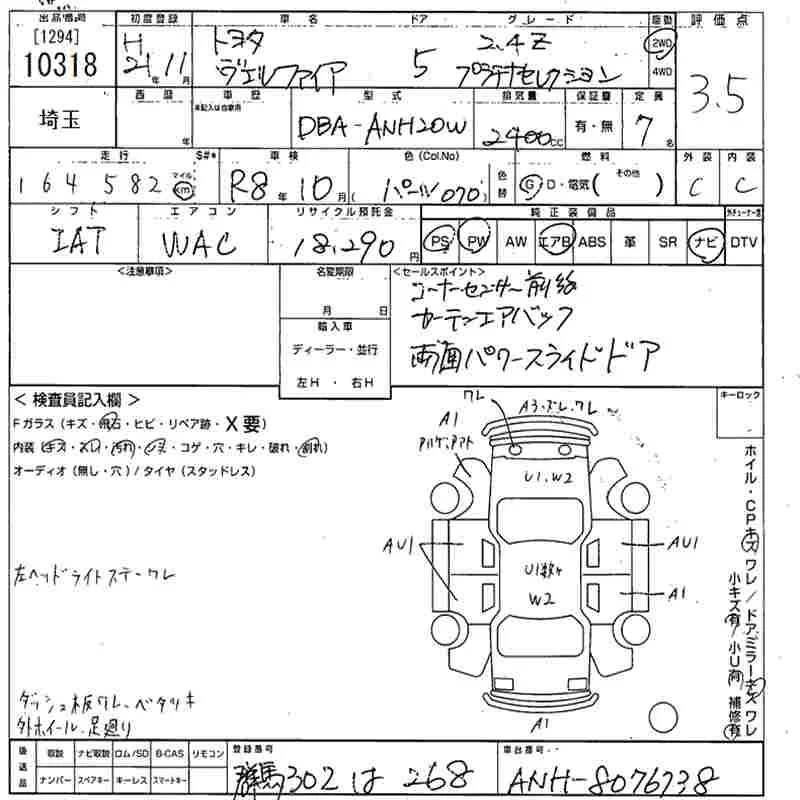 出品番号 初度登録 車名 ドア グレード 駆動 評価点
[1294] H トヨタ 2.4Z 2WD
10318 21年 11月 ヴェルファイア 5 プラチナセレクション 4WD 3.5
西暦 車歴 型式 排気量 保証書 定員
※記入は自家用
埼玉 年 DBA-ANH20W 2400cc 有・無 7名
走行 S#* 車検 色(Col.No) 燃料 外装 内装
164582 マイル km R8年 10月( パール 070) 色替 G D・電気( その他 ) C C
シフト エアコン リサイクル預託金 純正装備品
IAT WAC 18,290円 PS PW AW エアB ABS 革 SR ナビ DTV
<注意事項> 名変期限 <セールスポイント>
コーナーセンサー前後
月 日 カーテンエアバック
輸入車
ディーラー・並行 両側パワースライドドア
左H・右H
<検査員記入欄> キーロック
Fガラス(キズ・飛石・ヒビ・リペア跡・X要)
内装(キズ・スレ・汚れ・シミ・コゲ・穴・キレ・破れ・割れ)
オーディオ(無し・穴)/タイヤ(スタッドレス)
ワレ A3・ズレ・ワレ
A1
U1.W2
AU1 AU1
U1数ヶ
W2 A1
A1
ホイル・CPキズワレ/ドアミラーキズワレ
小キズ有 小U有 補修有
左ヘッドライトステーワレ
ダッシュ板ワレ、ベタツキ
外ホイール、足廻り
後送品 取説 ナビ取説 ロム/SD B-CAS リモコン 登録番号 車台番号
ナンバー スペアキー キーレス スマートキー 群馬302 は 268 ANH-8076738